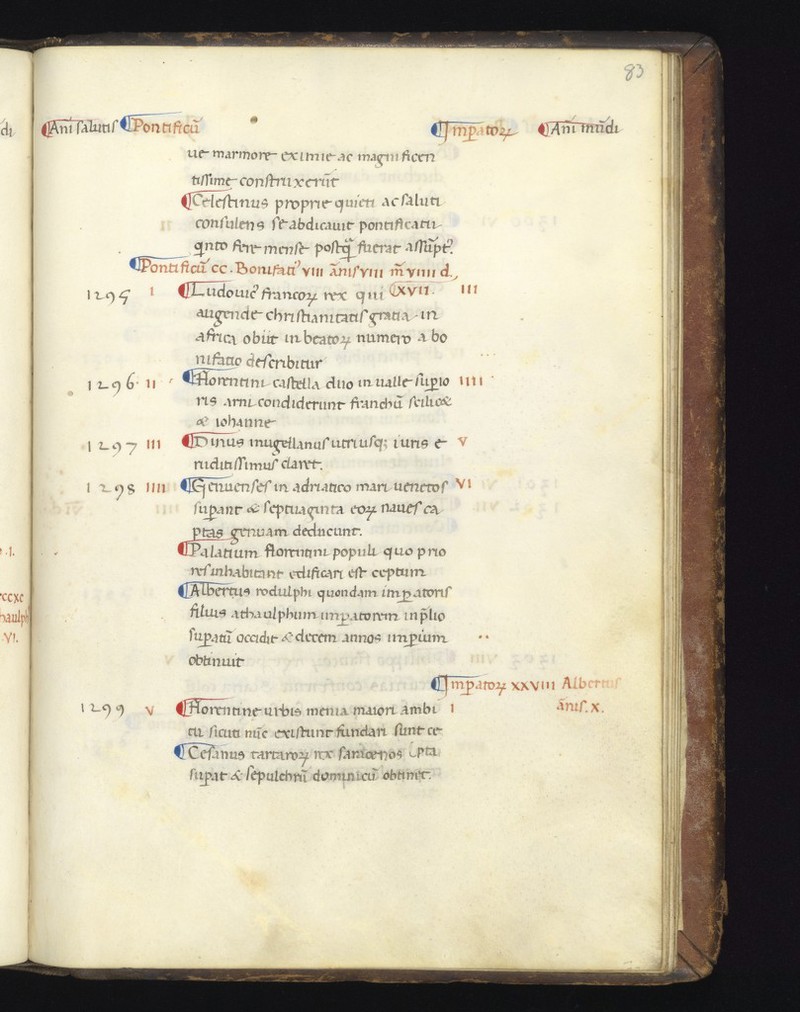 83
Añi salutis Pontificū Imꝑatoꝝ Añi mūdi
ue marmore eximie ac magnificen
tissime construxerūt
Celestinus proprie quieti ac saluti
consulens se abdicauit pontificatu
qͥnto fere mense postqͣ̄ fuerat assūptꝰ.
Pontificū cc. Bonifatiꝰ viii añis viii m̄ viiii d.
1295 I Ludouicꝰ francoꝝ rex qui III
augende christianitatis gratia in
africa obiit in beatoꝝ numero a bo
nifatio describitur
1296 II Florentini castella duo in ualle suꝑio IIII
ris arni condiderunt franchū scilicet
& iohanne
1297 III Dinus mugellanus utriusqꝫ iuris e V
ruditissimus claret.
1298 IIII Genuenses in adriatico mari uenetos VI
suꝑant & septuaginta eoꝝ naues ca
ptas genuam deducunt.
Palatium florentini populi quo prio
res inhabitant edificari est ceptum
Albertus rodulphi quondam imꝑatoris
filius athaulphum imꝑatorem in p̄lio
suꝑatū occidit & decem annos imperium
obtinuit
Imꝑatoꝝ XXVIII Albertus
añis. x.
1299 V Florentine urbis menia maiori ambi I
tu sicuti nūc existunt fundari sunt ce
pta
Cesanus tartaroꝝ rex saracenos
suꝑat & sepulchrū dominicū obtinet.